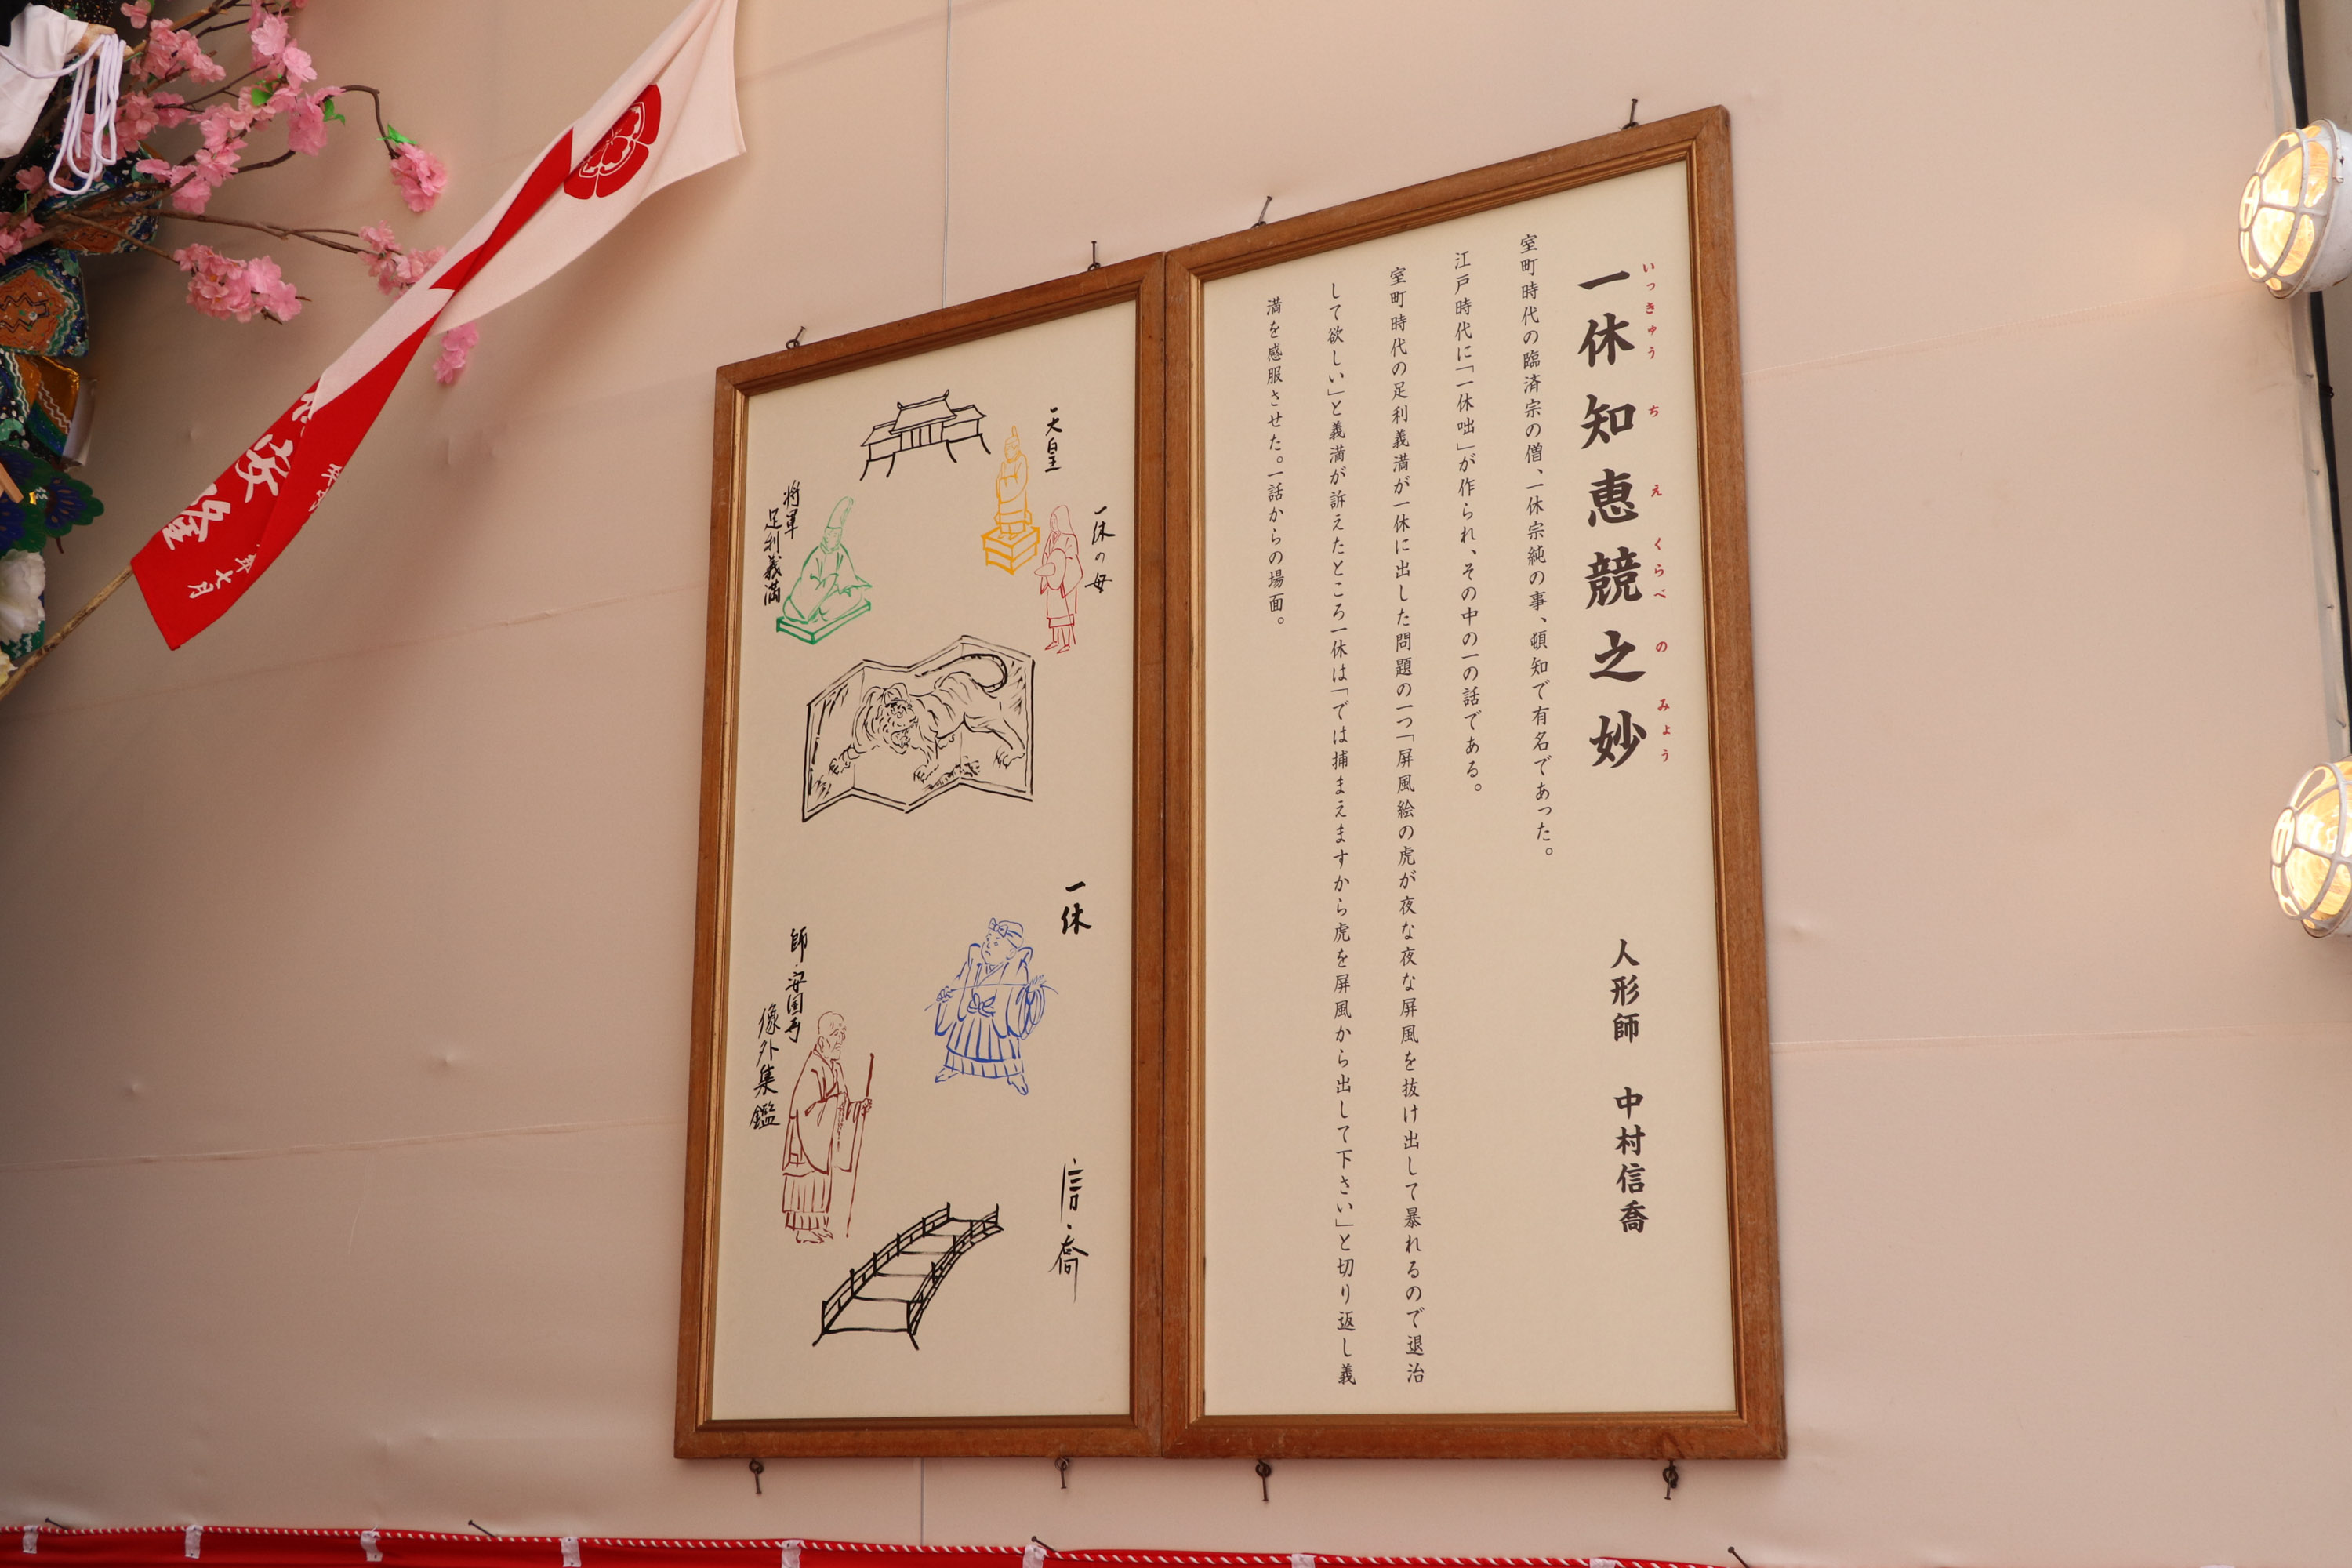 一休知恵競之妙
いっきゅう ち え くらべ の みょう
人形師 中村信喬
室町時代の臨済宗の僧、一休宗純の事、頓知で有名であった。
江戸時代に「一休咄」が作られ、その中の一の話である。
室町時代の足利義満が一休に出した問題の一つ「屏風絵の虎が夜な夜な屏風を抜け出して暴れるので退治
して欲しい」と義満が訴えたところ一休は「では捕まえますから虎を屏風から出して下さい」と切り返し義
満を感服させた。一話からの場面。
天皇
一休の母
将軍
足利義満
一休
師・安国寺
像外集鑑
信・喬
七月